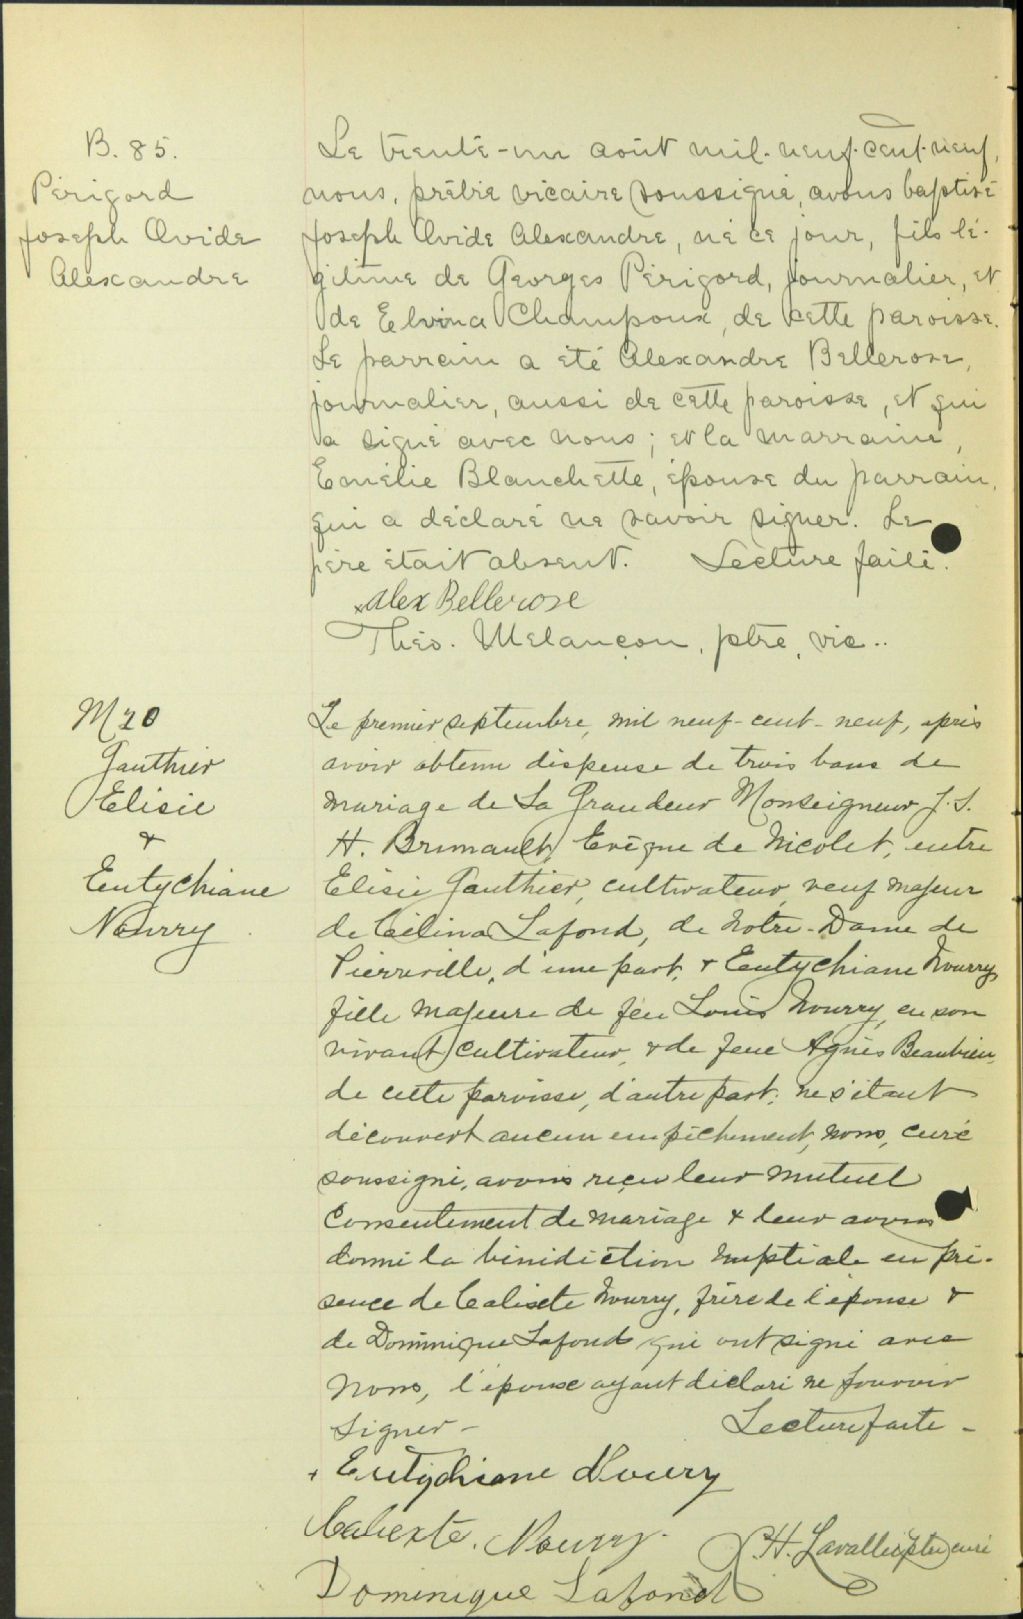 B. 85.
Périgord
Joseph Ovide
Alexandre
Le trente-un août mil-neuf-cent-neuf,
nous, prêtre vicaire soussigné, avons baptisé
Joseph Ovide Alexandre, né ce jour, fils lé-
gitime de Georges Périgord, journalier, et
de Elvina Champoux, de cette paroisse.
Le parrain a été Alexandre Bellerose,
journalier, aussi de cette paroisse, et qui
a signé avec nous; et la marraine,
Emélie Blanchette, épouse du parrain,
qui a déclaré ne savoir signer. Le
père était absent. Lecture faite.
x Alex Bellerose
Théo. Melançon, ptre, vic..
M 20
Gauthier
Elisie
&
Eutychiane
Nourry
Le premier septembre, mil neuf-cent-neuf, après
avoir obtenu dispense de trois bans de
mariage de Sa Grandeur Monseigneur J. S.
H. Brunault, Evêque de Nicolet, entre
Elisie Gauthier, cultivateur, veuf majeur
de Célina Lafond, de Notre-Dame de
Pierreville, d'une part, & Eutychiane Nourry
fille majeure de feu Louis Nourry, en son
vivant cultivateur, & de feue Agnès Beaubien,
de cette paroisse, d'autre part; ne s'étant
découvert aucun empêchement, nous, curé
soussigné, avons reçu leur mutuel
consentement de mariage & leur avons
donné la bénédiction nuptiale en pré-
sence de Calixte Nourry, frère de l'épouse &
de Dominique Lafond qui ont signé avec
nous, l'époux ayant déclaré ne pouvoir
signer - Lecture faite -
x Eutychiane Noury
Calixte. Nourry.
P. H. Lavallée ptre curé
Dominique Lafond